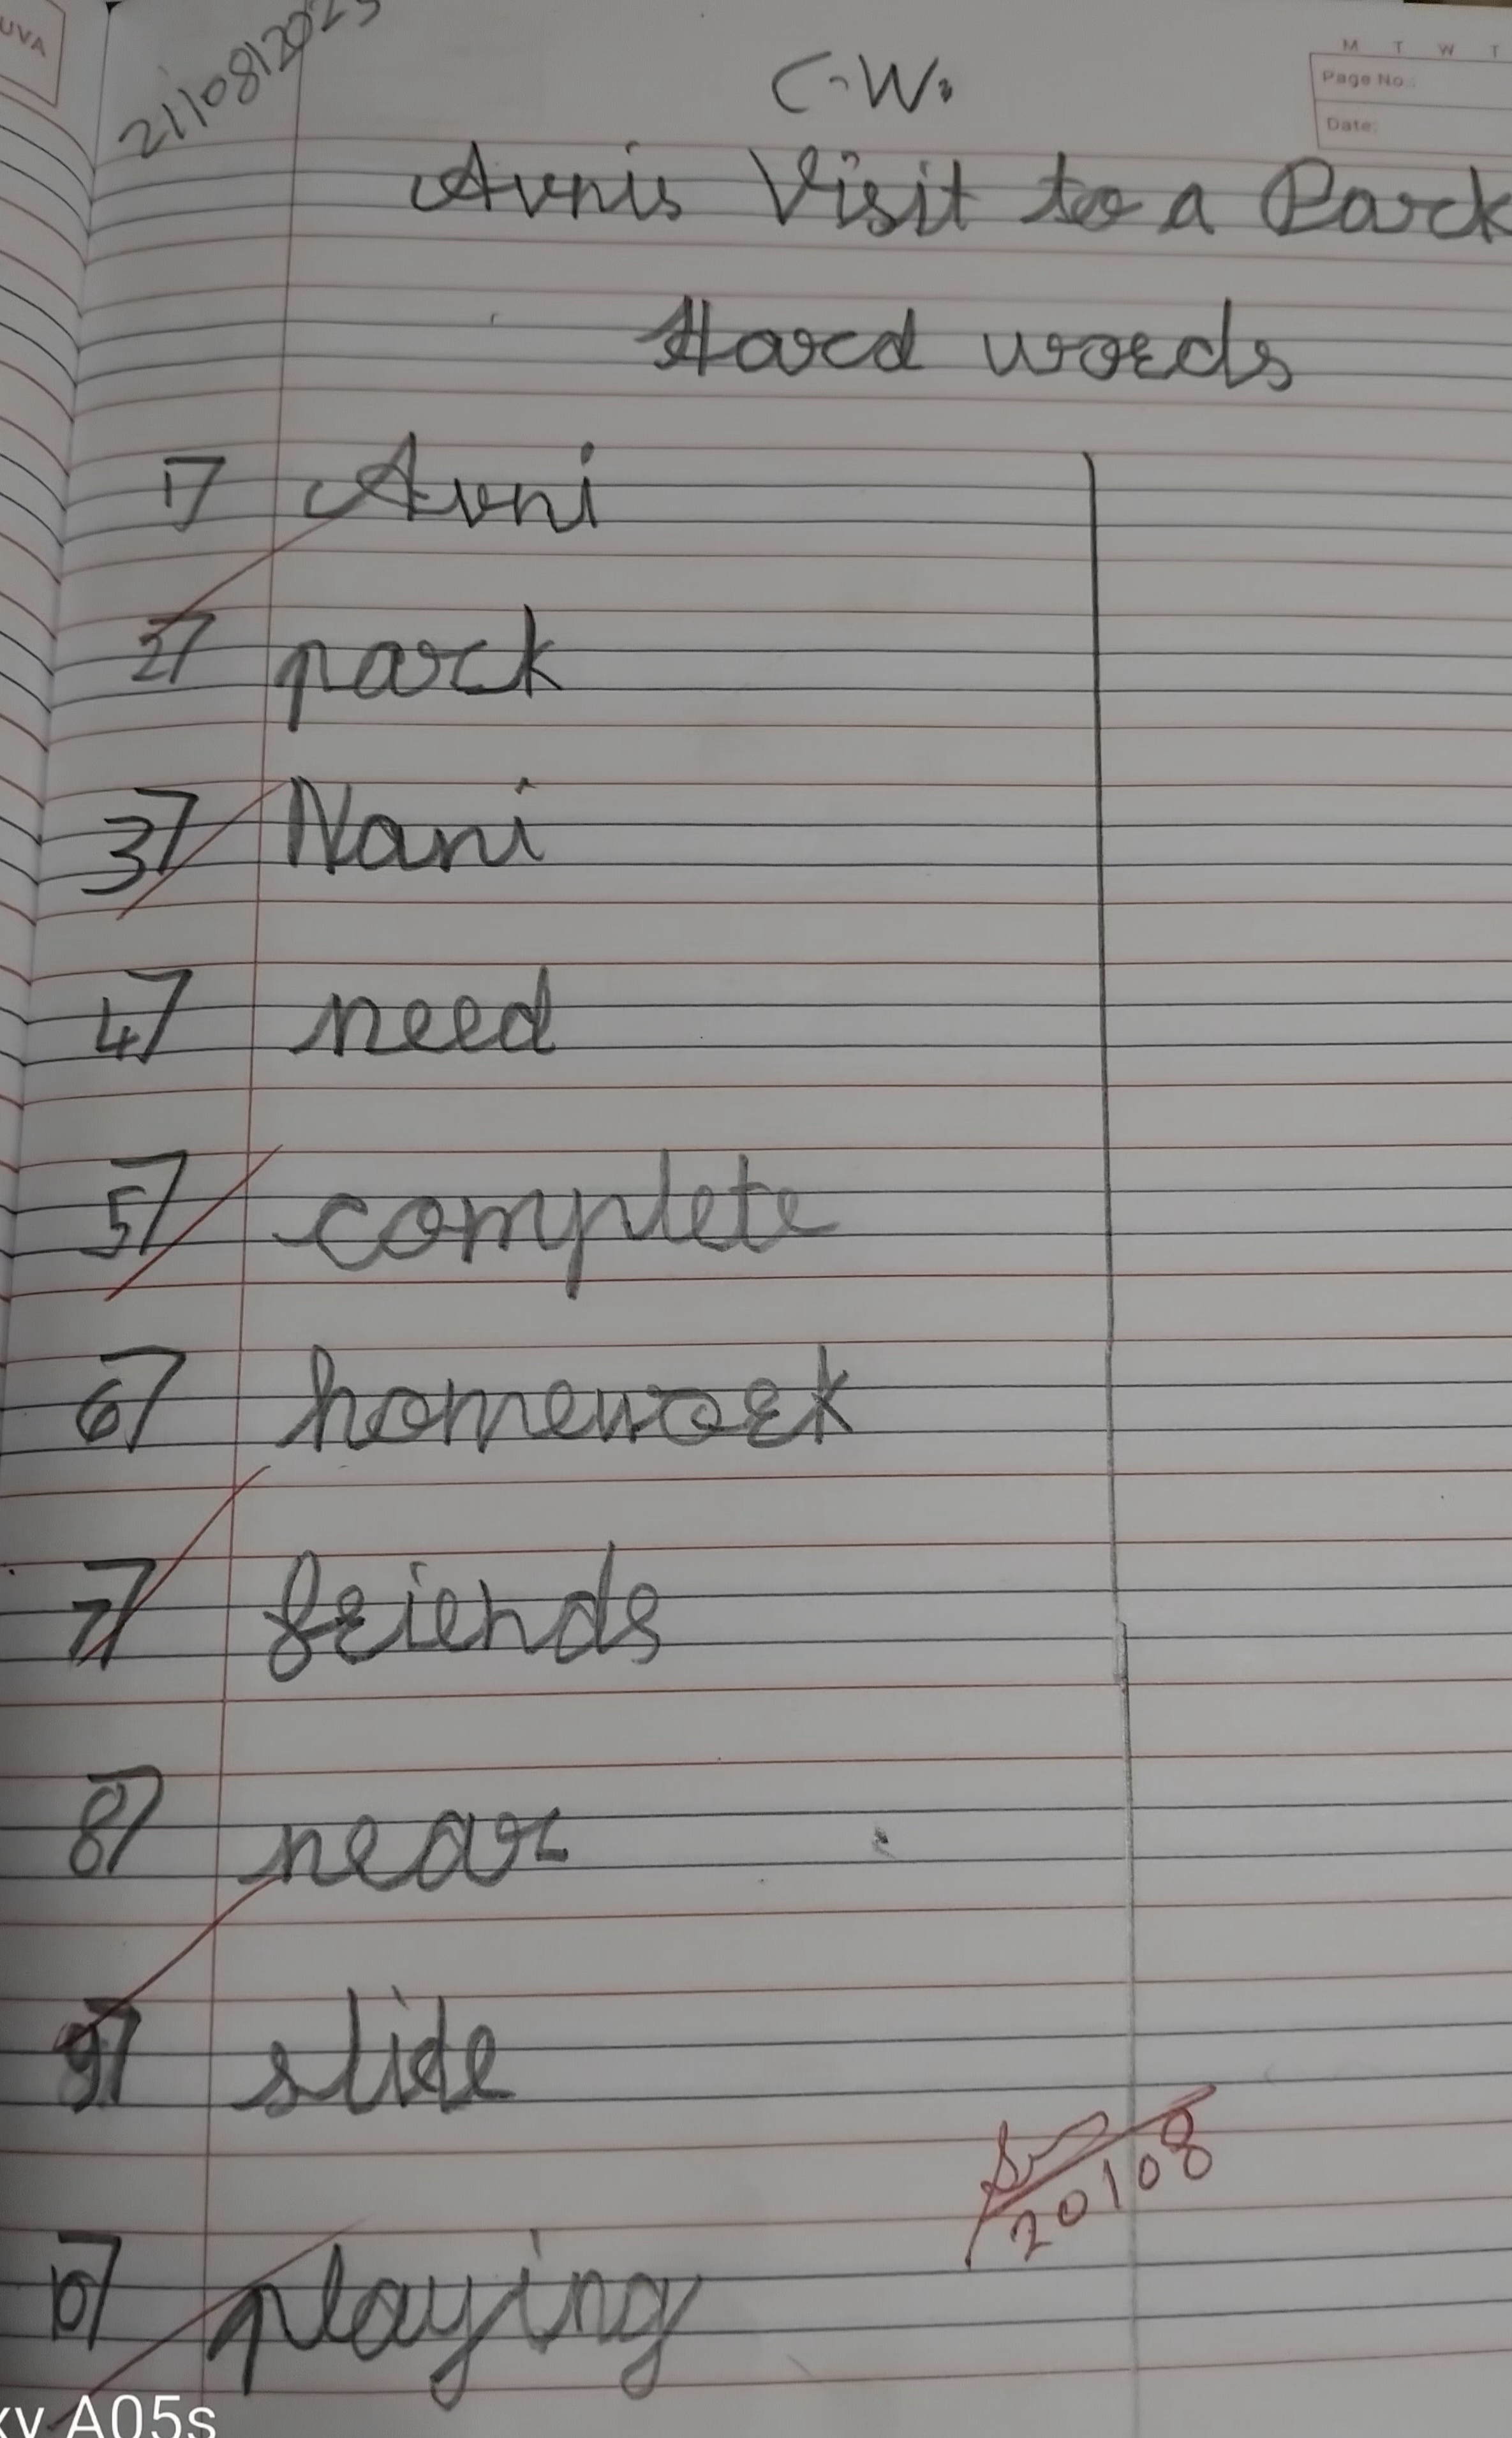 UVA
21/08/2025
C.W.
M T W T
Page No.:
Date:
Avnis Visit to a Park
Hard words
1) Avni
2) park
3) Nani
4) need
5) complete
6) homework
7) friends
8) near
9) slide
10) playing
20/08
A05s